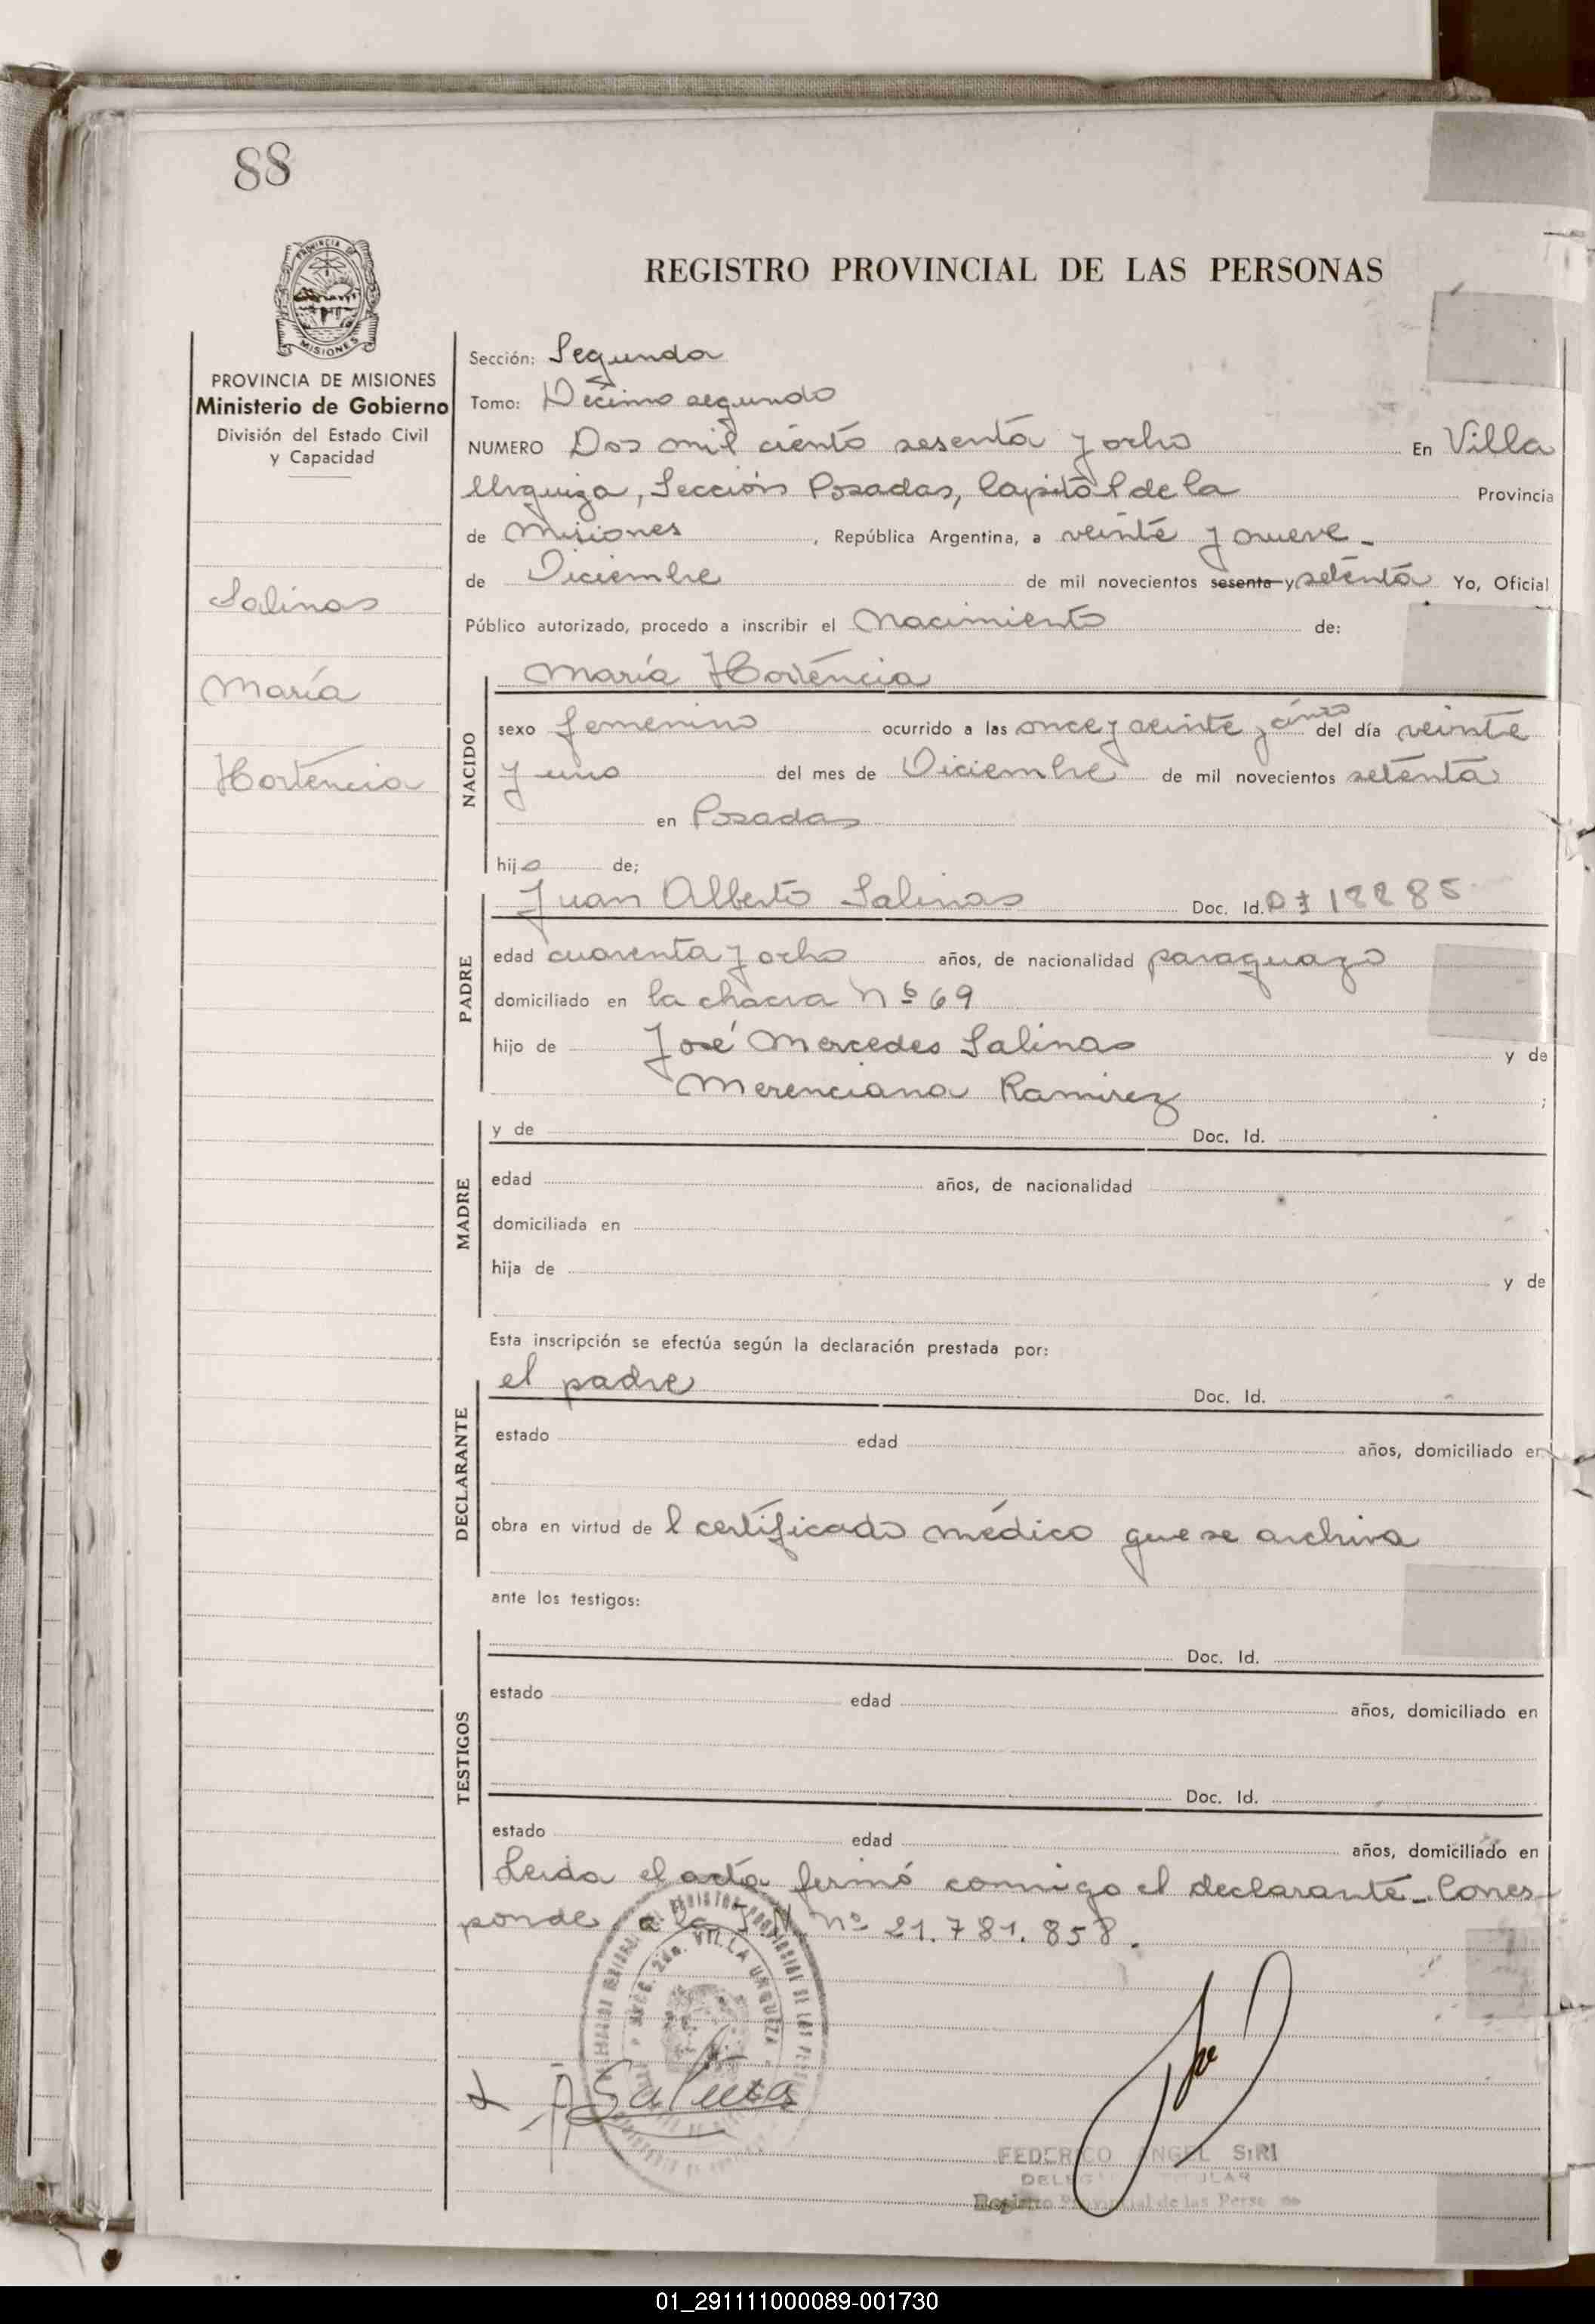 88
PROVINCIA DE
MISIONES
REGISTRO PROVINCIAL DE LAS PERSONAS
PROVINCIA DE MISIONES
Ministerio de Gobierno
División del Estado Civil
y Capacidad
Salinas
María
Hortencia
Sección: Segunda
Tomo: Décimo segundo
NUMERO Dos mil ciento sesenta y ocho En Villa
Urquiza, Sección Posadas, Capital de la Provincia
de Misiones, República Argentina, a veinte y nueve -
de Diciembre de mil novecientos sesenta y setenta Yo, Oficial
Público autorizado, procedo a inscribir el Nacimiento de:
María Hortencia
NACIDO
sexo femenino ocurrido a las once y veinte y cinco del día veinte
y uno del mes de Diciembre de mil novecientos setenta
en Posadas
hija de;
Juan Alberto Salinas Doc. Id.
PADRE
edad cuarenta y ocho años, de nacionalidad paraguayo
domiciliado en la chacra Nº 69
hijo de José Mercedes Salinas y de
Merenciana Ramirez ;
y de Doc. Id.
MADRE
edad años, de nacionalidad
domiciliada en
hija de y de
Esta inscripción se efectúa según la declaración prestada por:
el padre Doc. Id.
DECLARANTE
estado edad años, domiciliado en
obra en virtud de l certificado médico que se archiva
ante los testigos:
Doc. Id.
TESTIGOS
estado edad años, domiciliado en
Doc. Id.
estado edad años, domiciliado en
Leida el acta firmó conmigo el declarante - Corres-
ponde a la Nº 21.781.858.
SECC. 2da. VILLA URQUIZA
Salinas
FEDERICO ANGEL SIRI
Registro Provincial de las Personas
01_291111000089-001730